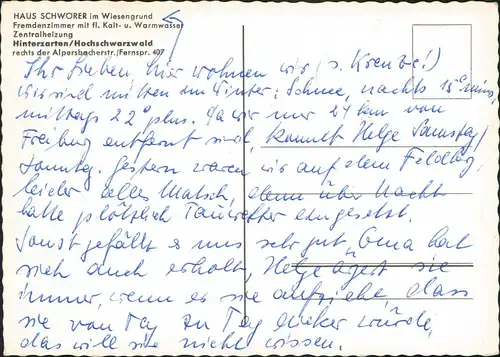 HAUS SCHWÖRER im Wiesengrund
Fremdenzimmer mit fl. Kalt- u. Warmwasser
Zentralheizung
Hinterzarten/Hochschwarzwald
rechts der Alpersbacherstr./Fernspr. 407
Ihr Lieben, hier wohnen wir (s. Kreuze!)
Wir sind mitten im Winter: Schnee, nachts 15° minus,
mittags 22° plus. Da wir nur 24 km von
Freiburg entfernt sind, kommt Helge Samstag/
Sonntag. Gestern waren wir auf dem Feldberg,
leider alles Matsch, denn über Nacht
hatte plötzlich Tauwetter eingesetzt.
Sonst gefällt es uns sehr gut, Oma hat
sich auch erholt, Helge ägert sie
immer, wenn er sie aufzieht, dass
sie von Tag zu Tag dicker würde,
das will sie nicht wissen.